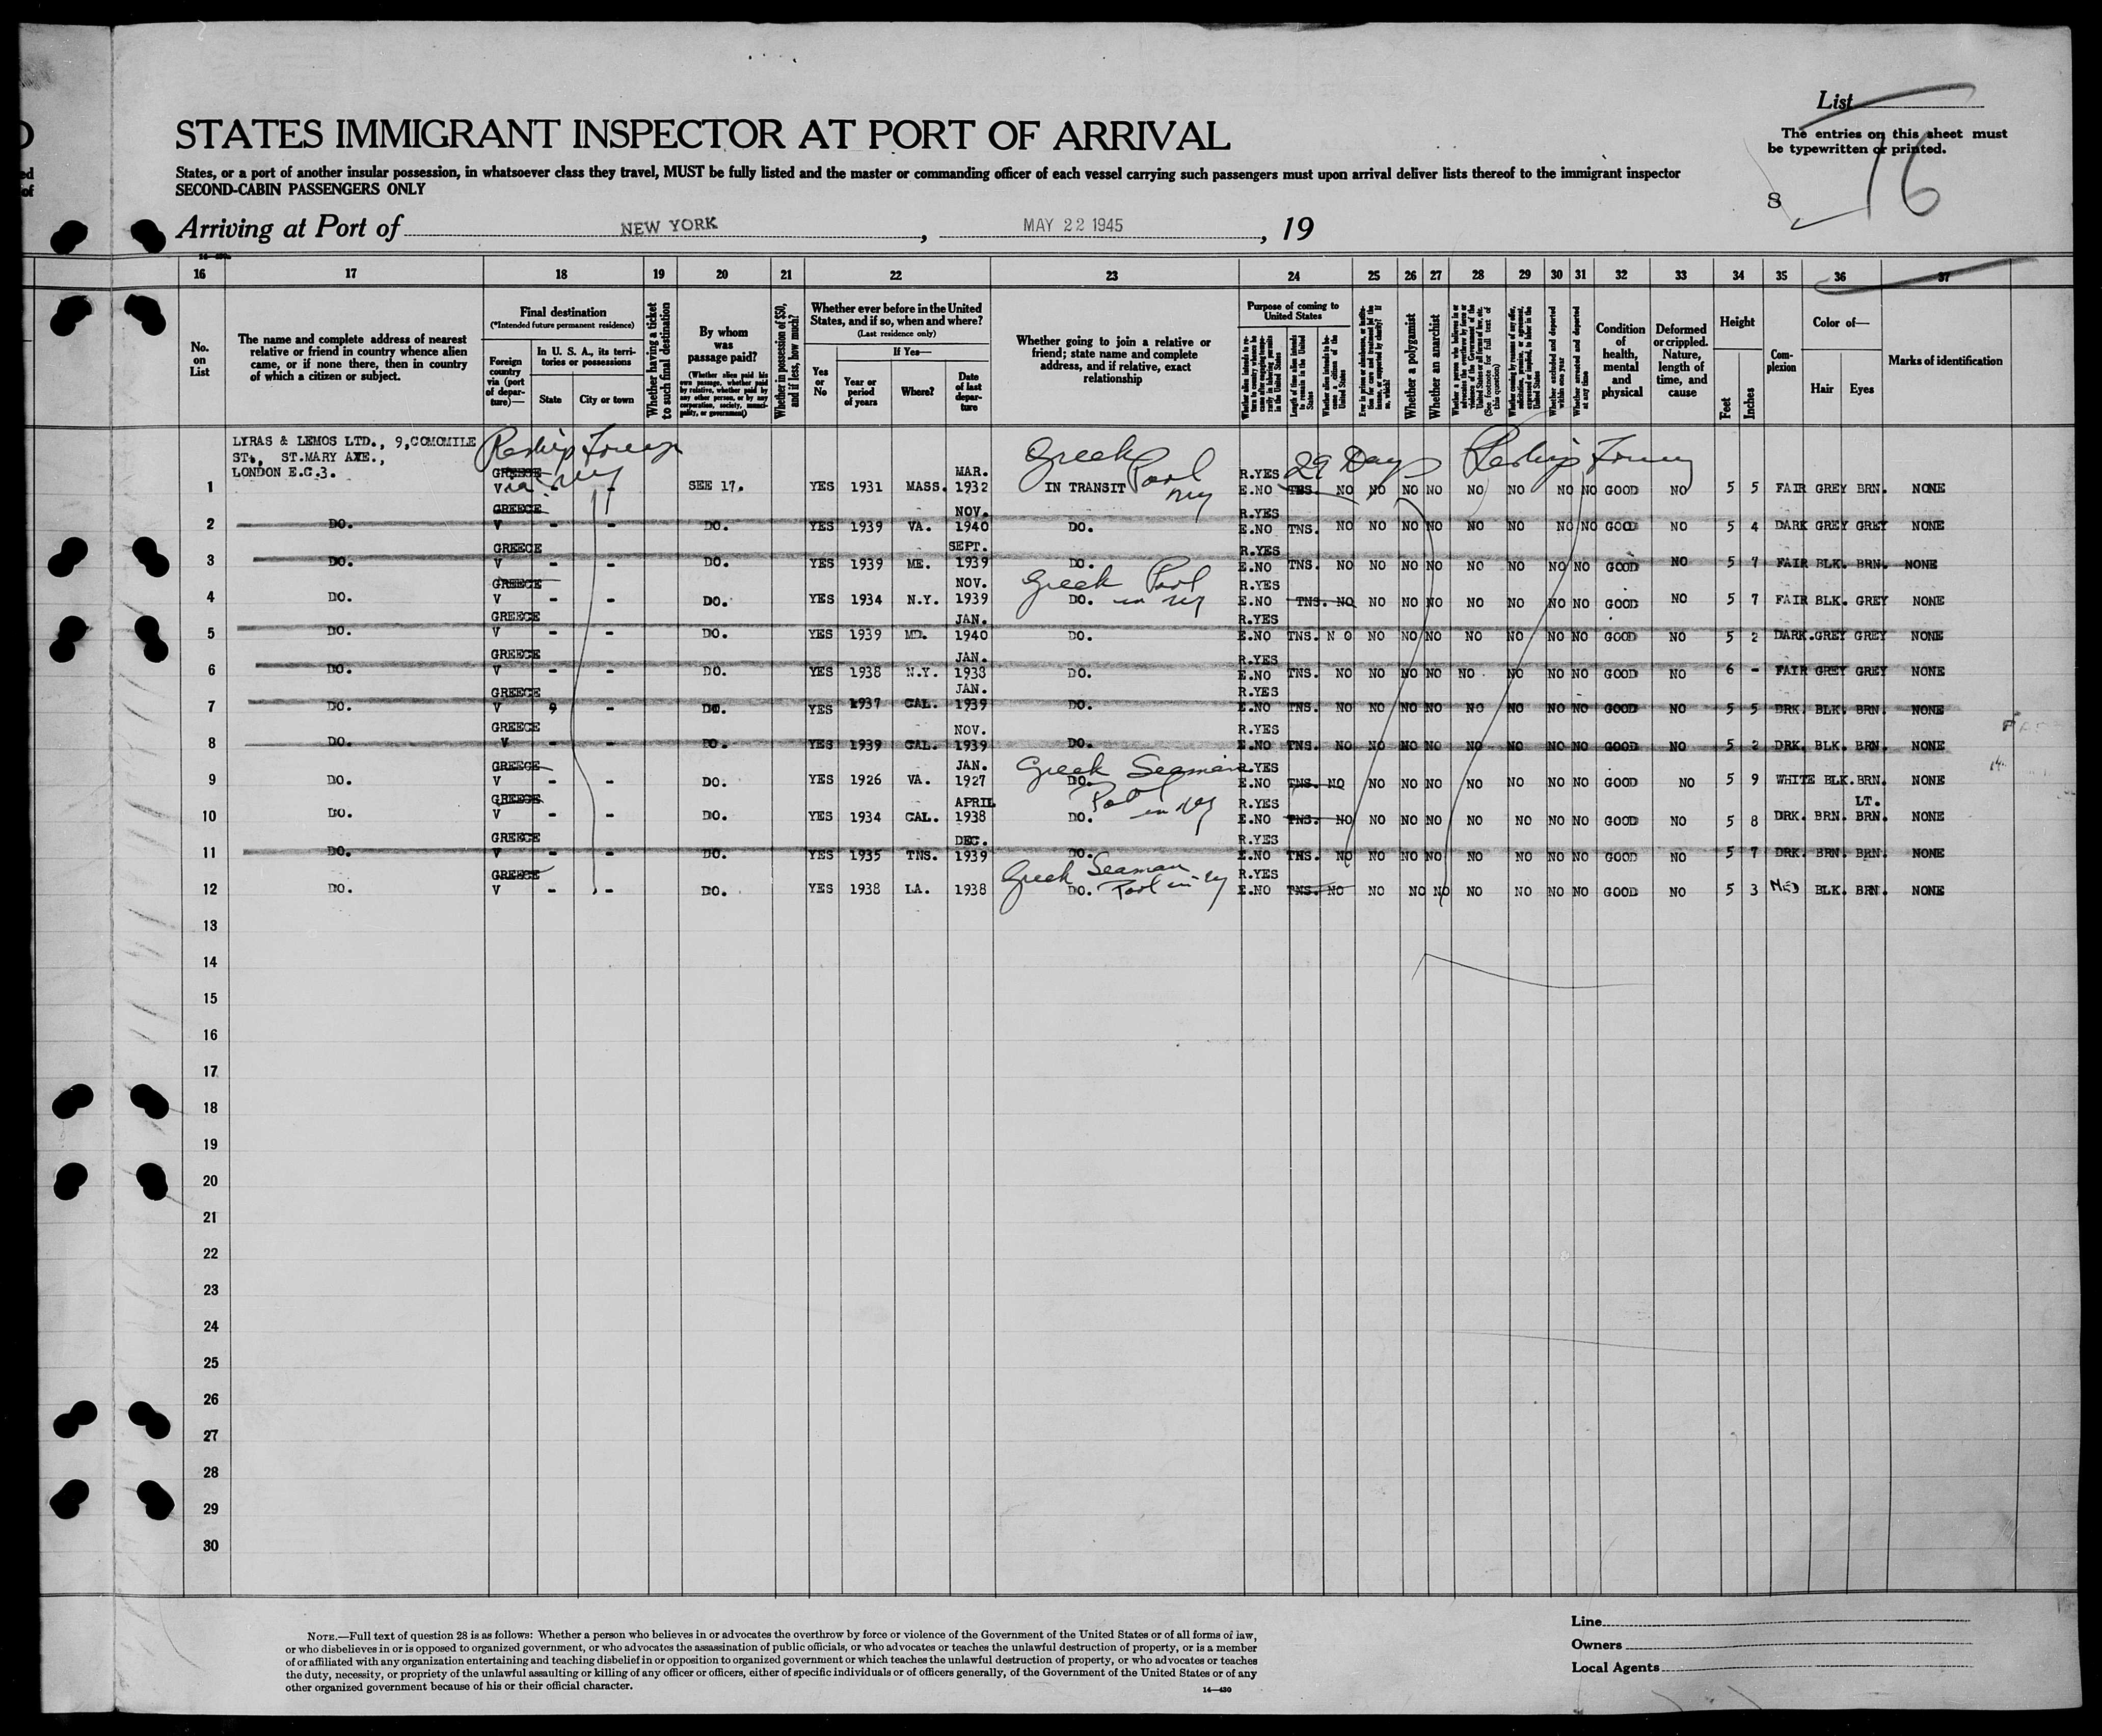 List
STATES IMMIGRANT INSPECTOR AT PORT OF ARRIVAL
The entries on this sheet must
be typewritten or printed.
States, or a port of another insular possession, in whatsoever class they travel, MUST be fully listed and the master or commanding officer of each vessel carrying such passengers must upon arrival deliver lists thereof to the immigrant inspector
SECOND-CABIN PASSENGERS ONLY
8 16
Arriving at Port of NEW YORK, MAY 22 1945, 19
16 17 18 19 20 21 22 23 24 25 26 27 28 29 30 31 32 33 34 35 36 37
No. on List
The name and complete address of nearest relative or friend in country whence alien came, or if none there, then in country of which a citizen or subject.
Final destination
(*Intended future permanent residence)
Foreign country via (port of departure)—
In U. S. A., its territories or possessions
State City or town
Whether having a ticket to such final destination
By whom was passage paid?
(Whether alien paid his own passage, whether paid by relative, whether paid by any other person, or by any corporation, society, municipality, or government)
Whether in possession of $50, and if less, how much?
Whether ever before in the United States, and if so, when and where?
(Last residence only)
Yes or No
If Yes—
Year or period of years
Where?
Date of last departure
Whether going to join a relative or friend; state name and complete address, and if relative, exact relationship
Purpose of coming to United States
Length of time alien intends to remain in the United States
Whether alien intends to become a citizen of the United States
Whether a polygamist
Whether an anarchist
Whether excluded and deported within one year
Whether arrested and deported at any time
Condition of health, mental and physical
Deformed or crippled. Nature, length of time, and cause
Height
Feet Inches
Complexion
Color of—
Hair Eyes
Marks of identification
LYRAS & LEMOS LTD., 9,COMOMILE
ST., ST.MARY AXE.,
LONDON E.C.3.
Greek Pool NY
29 Days
1 GREECE V - - SEE 17. YES 1931 MASS. MAR. 1932 IN TRANSIT R.YES E.NO TNS. NO NO NO NO NO NO NO NO GOOD NO 5 5 FAIR GREY BRN. NONE
2 DO. GREECE V - - DO. YES 1939 VA. NOV. 1940 DO. R.YES E.NO TNS. NO NO NO NO NO NO NO NO GOOD NO 5 4 DARK GREY GREY NONE
3 DO. GREECE V - - DO. YES 1939 ME. SEPT. 1939 DO. R.YES E.NO TNS. NO NO NO NO NO NO NO NO GOOD NO 5 7 FAIR BLK. BRN. NONE
Greek Pool in NY
4 DO. GREECE V - - DO. YES 1934 N.Y. NOV. 1939 DO. R.YES E.NO TNS. NO NO NO NO NO NO NO NO GOOD NO 5 7 FAIR BLK. GREY NONE
5 DO. GREECE V - - DO. YES 1939 MD. JAN. 1940 DO. R.YES E.NO TNS. N O NO NO NO NO NO NO NO GOOD NO 5 2 DARK.GREY GREY NONE
6 DO. GREECE V - - DO. YES 1938 N.Y. JAN. 1938 DO. R.YES E.NO TNS. NO NO NO NO NO NO NO NO GOOD NO 6 - FAIR GREY GREY NONE
7 DO. GREECE V 9 - DO. YES 1937 CAL. JAN. 1939 DO. R.YES E.NO TNS. NO NO NO NO NO NO NO NO GOOD NO 5 5 DRK. BLK. BRN. NONE
8 DO. GREECE V - - DO. YES 1939 CAL. NOV. 1939 DO. R.YES E.NO TNS. NO NO NO NO NO NO NO NO GOOD NO 5 2 DRK. BLK. BRN. NONE
Greek Seaman Pool in NY
9 DO. GREECE V - - DO. YES 1926 VA. JAN. 1927 DO. R.YES E.NO TNS. NO NO NO NO NO NO NO NO GOOD NO 5 9 WHITE BLK.BRN. NONE
10 DO. GREECE V - - DO. YES 1934 CAL. APRIL 1938 DO. R.YES E.NO TNS. NO NO NO NO NO NO NO NO GOOD NO 5 8 DRK. BRN. LT. BRN. NONE
11 DO. GREECE V - - DO. YES 1935 TNS. DEC. 1939 DO. R.YES E.NO TNS. NO NO NO NO NO NO NO NO GOOD NO 5 7 DRK. BRN. BRN. NONE
Greek Seaman Pool in NY
12 DO. GREECE V - - DO. YES 1938 LA. 1938 DO. R.YES E.NO TNS. NO NO NO NO NO NO NO NO GOOD NO 5 3 MED BLK. BRN. NONE
13
14
15
16
17
18
19
20
21
22
23
24
25
26
27
28
29
30
NOTE.—Full text of question 28 is as follows: Whether a person who believes in or advocates the overthrow by force or violence of the Government of the United States or of all forms of law,
or who disbelieves in or is opposed to organized government, or who advocates the assassination of public officials, or who advocates or teaches the unlawful destruction of property, or is a member
of or affiliated with any organization entertaining and teaching disbelief in or opposition to organized government or which teaches the unlawful destruction of property, or who advocates or teaches
the duty, necessity, or propriety of the unlawful assaulting or killing of any officer or officers, either of specific individuals or of officers generally, of the Government of the United States or of any
other organized government because of his or their official character.
14—430
Line
Owners
Local Agents